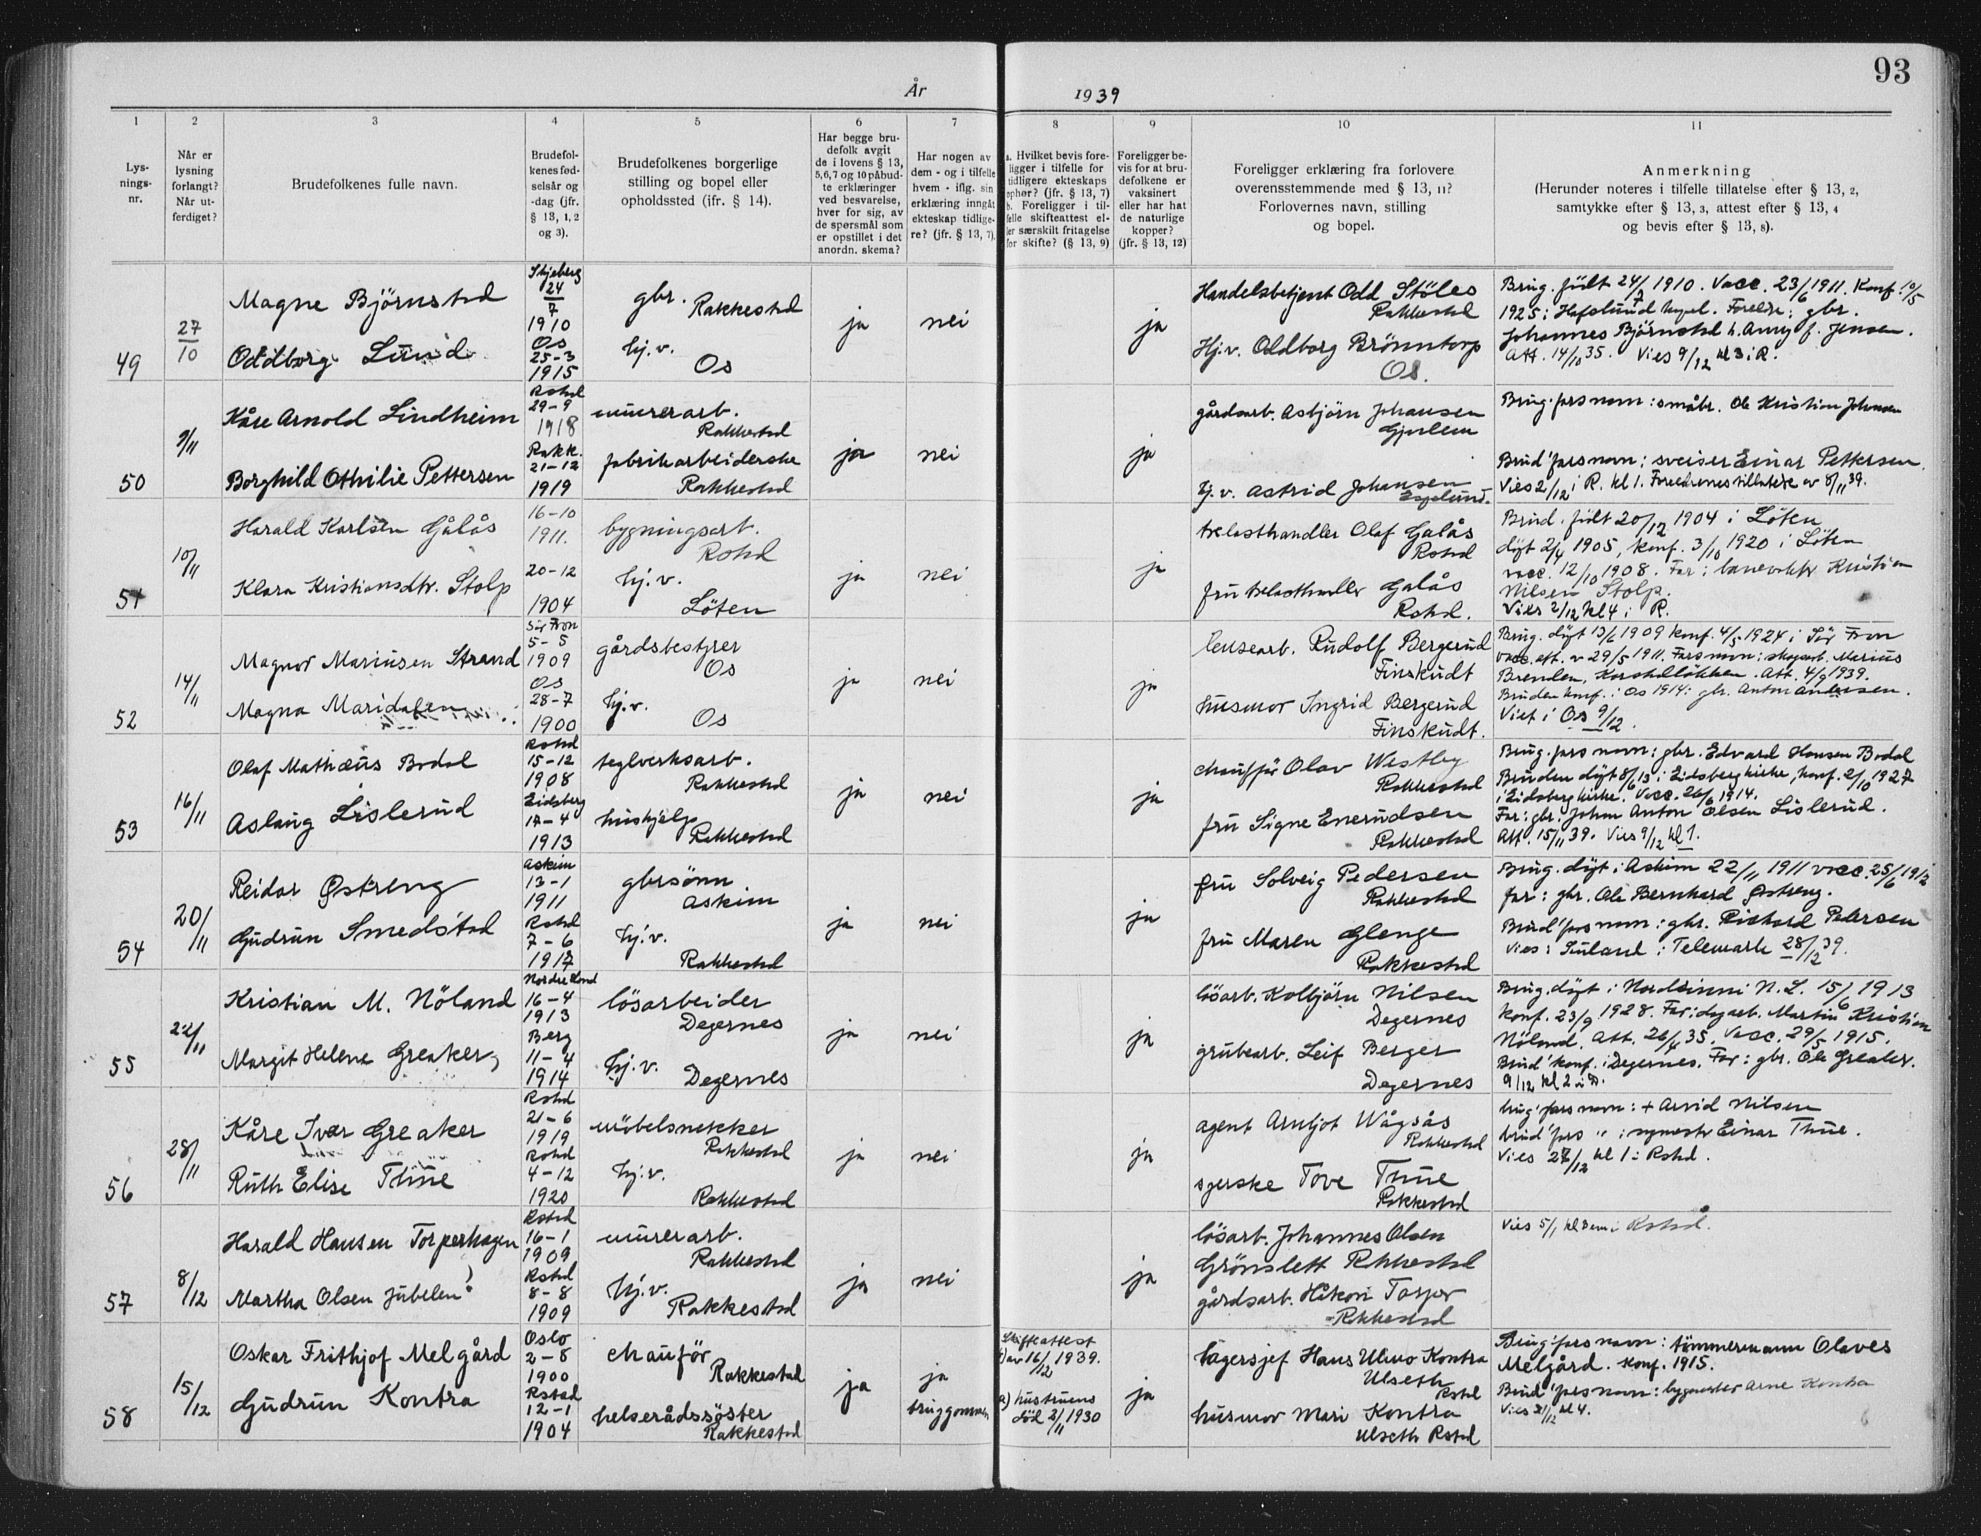 93
År 1939
1 2 3 4 5 6 7 8 9 10 11
Lys-
nings-
nr.
Når er
lysning
forlangt?
Når ut-
ferdiget?
Brudefolkenes fulle navn.
Brudefol-
kenes fød-
selsår og
-dag (jfr.
§ 13, 1, 2
og 3).
Brudefolkenes borgerlige
stilling og bopel eller
opholdssted (ifr. § 14).
Har begge bru-
defolk avgit
de i lovens § 13,
5,6,7 og 10 påbud-
te erklæringer
ved besvarelse,
hver for sig, av
de spørsmål som
er opstillet i det
anordn. skema?
Har nogen av
dem - og i tilfelle
hvem - iflg. sin
erklæring inngåt
ekteskap tidlige-
re? (jfr. § 13, 7).
a. Hvilket bevis fore-
ligger i tilfelle for
tidligere ekteskaps
ophør? (jfr. § 13, 7)
b. Foreligger i til-
felle skifteattest el-
ler særskilt fritagelse
for skifte? (§ 13, 9)
Foreligger be-
vis for at bru-
defolkene er
vaksinert
eller har hat
de naturlige
kopper?
(jfr. § 13, 12)
Foreligger erklæring fra forlovere
overensstemmende med § 13, 11?
Forlovernes navn, stilling
og bopel.
Anmerkning
(Herunder noteres i tilfelle tillatelse efter § 13, 2,
samtykke efter § 13, 3, attest efter § 13, 4
og bevis efter § 13, 8).
49
27/10
Magne Björnstad
Oddborg Lund
Skjeberg
24/7
1910
Os
25-3
1915
gbr. Rakkestad
hj.v.
Os
ja
nei
ja
Handelsbetjent Odd Stöles
Rakkestad
Hj.v. Oddborg Brönntorp
Os.
Brug. født 24/7 1910. Vacc. 23/6 1911. Konf. 10/5
1925 i Hafslund kapel. Foreldre: gbr.
Johannes Björnstad h. Anny f. Jensen.
Att. 14/10 35. Vies 9/12 kl 3 i R.
50
9/11
Kåre Arnold Lindheim
Borghild Othilie Pettersen
Rstad
29-9
1918
Rakk.
21-12
1919
murerarb.
Rakkestad
fabrikarbeiderske
Rakkestad
ja
nei
ja
gårdsarb. Asbjörn Johansen
hj.v. Astrid Johansen
Brug. farsnavn: småbr. Ole Kristian Johansen
Brud' farsnavn: sveiser Einar Pettersen.
Vies 2/12 i R. kl 1. Foreldrenes tillatelse av 8/11 39.
51
10/11
Harald Karlsen Gålås
Klara Kristiansdtr. Stolp
16-10
1911.
20-12
1904
bygningsarb.
Rstad
hj.v.
Löten
ja
nei
ja
trelasthandler Olaf Galås
Rstad
fru trelasthandler Galås
Rstad.
Brud. født 20/12 1904 i Löten
döpt 2/4 1905, konf. 3/10 1920 i Löten
vacc. 12/10 1908. Far: Kristian
Nilsen Stolp.
Vies 2/12 kl 4 i R.
52
14/11
Magnor Mariusen Strand
Magna Maridalen
Sör Fron
5-5
1909
Os
28-7
1900
gårdsbestyrer
Os
hj.v.
Os
ja
nei
ja
Rudolf Bergerud
Finskudt
husmor Ingrid Bergerud
Finskudt.
Brug. döpt 13/6 1909 konf. 4/5 1924 i Sör Fron
vacc. att. v 29/5 1911. Farsnavn: skogarb. Marius
Brenden, Att. 4/9 1939.
Bruden konf. i Os 1914: gbr. Anton Andersen.
Viet i Os 9/12.
53
16/11
Olaf Mathæus Bodal
Aslaug Lislerud
Rstad
15-12
1908
Eidsberg
17-4
1913
teglverksarb.
Rakkestad
hushjelp
Rakkestad
ja
nei
ja
chauffør Olav Westby
Rakkestad
fru Signe Enerudsen
Rakkestad
Brug. farsnavn: gbr. Edvard Hansen Bodal
Bruden döpt 8/6 13 i Eidsberg kirke, konf. 2/10 1927
i Eidsberg kirke. Vacc. 26/6 1914.
Far: gbr. Johan Anton Olsen Lislerud.
Att. 15/11 39. Vies 9/12 kl 1.
54
20/11
Reidar Østreng
Gudrun Smedstad
Askim
13-1
1911
Rstad
7-6
1917
gbrsönn
Askim
hj.v.
Rakkestad
ja
nei
ja
fru Solveig Pedersen
Rakkestad
fru Maren Glenge
Rakkestad
Brug. döpt i Askim 22/11 1911 vacc. 25/6 1912
far: gbr. Ole Bernhard Østreng.
Brud' farsnavn: gbr. Rickard Pedersen
Vies i Telemark 28/12 39.
55
22/11
Kristian M. Nöland
Margit Helene Greaker
Nordre Land
16-4
1913
Berg
11-4
1914
lösarbeider
Degernes
hj.v.
Degernes
ja
nei
ja
lösarb. Kolbjörn Nilsen
Degernes
grubearb. Leif Berger
Degernes
Brug. döpt i Nordsinni N.L. 15/6 1913
konf. 23/9 1928. Far: dagarb. Martin Kristian
Nöland. Att. 26/4 35. Vacc. 29/5 1915.
Brud' konf. i Degernes. Far: gbr. Ole Greaker.
9/12 kl 2 i D.
56
28/11
Kåre Ivar Greaker
Ruth Elise Thue
Rstad
21-6
1919
Rstad
4-12
1920
möbelsnekker
Rakkestad
hj.v.
Rakkestad
ja
nei
ja
agent Arnljot Wågsås
Rakkestad
syerske Tove Thue
Rakkestad
brug' farsnavn: + Arvid Nilsen
brud' fars " : Einar Thue.
Vies 27/12 kl 1 i Rstad.
57
8/12
Harald Hansen Torperhagen
Martha Olsen Jubelen
Rstad
16-1
1909
Rstad
8-8
1909
murerarb.
Rakkestad
hj.v.
Rakkestad
ja
nei
ja
lösarb. Johannes Olsen
Grönslett Rakkestad
gårdsarb. Håkon Torper
Rakkestad
Vies 5/1 i Rstad.
58
15/12
Oskar Frithjof Melgård
Gudrun Kontra
Oslo
2-8
1900
Rstad
12-1
1904
chauför
Rakkestad
helserådssöster
Rakkestad
ja
ja
bruggommen
Skifteattest
av 16/12 1939.
a) hustruens
död 2/11 1930
ja
lagersjef Hans Uluo Kontra
Ulseth
Rstad
husmor Mari Kontra
Ulseth Rstad
Brug' farsnavn: tömmermann Olaves
Melgård. Konf. 1915.
Brud' farsnavn: bygmester Arne Kontra
Vies 21/12 kl 4.